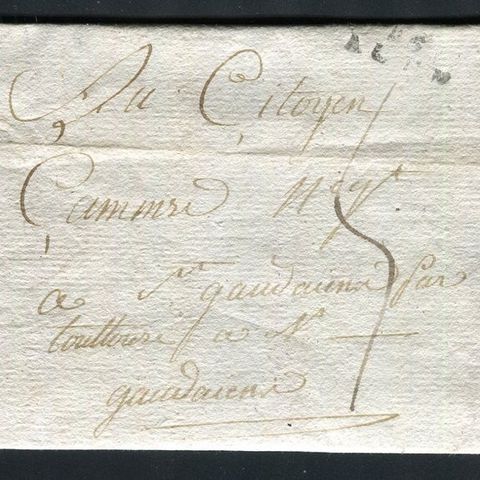 Au Citoyen
Cammire Neg.t
à St gaudaiens par
toulouse a St
gaudaiens